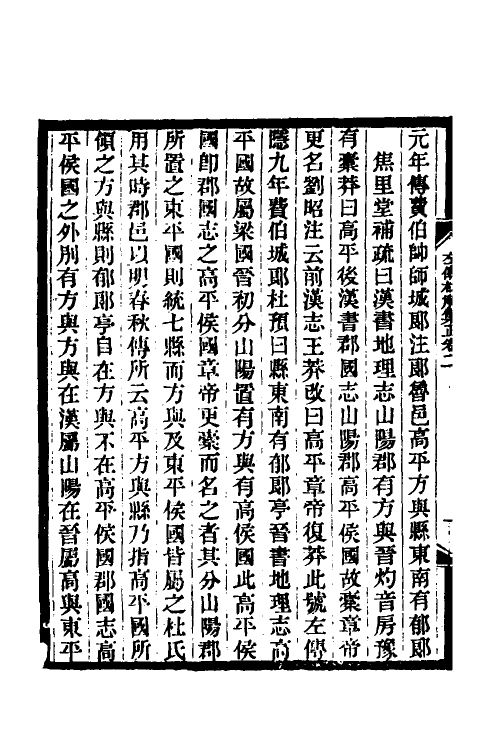 元年傳費伯帥師城郎注郎魯邑高平方與縣東南有郁郎
焦里堂補疏曰漢書地理志山陽郡有方與晉灼音房豫
有橐莽曰高平後漢書郡國志山陽郡高平侯國故橐章帝
更名劉昭注云前漢志王莽改曰高平章帝復莽此號左傳
隱九年費伯城郎杜預曰縣東南有郁郎亭晉書地理志高
平國故屬梁國晉初分山陽置有方與有高侯國此高平侯
國即郡國志之高平侯國章帝更橐而名之者其分山陽郡
所置之東平國則統七縣而方與及東平侯國皆屬之杜氏
用其時郡邑以明春秋傳所云高平方與縣乃指高平國所
領之方與縣則郁郎亭自在方與不在高平侯國郡國志高
平侯國之外別有方與方與在漢屬山陽在晉屬高與東平
左傳杜解集正卷二